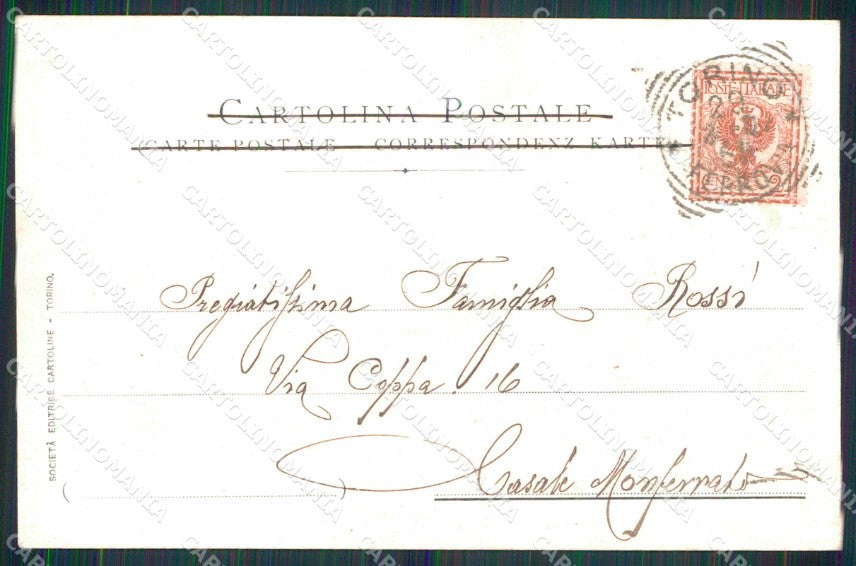 CARTOLINA POSTALE
CARTE POSTALE CORRESPONDENZ KARTE
POSTE ITALIANE
TORINO
FERROVIA
Pregiatissima Famiglia Rossi
Via Coppa. 16
Casale Monferrato
SOCIETÀ EDITRICE CARTOLINE - TORINO.
CARTOLINOMANIA